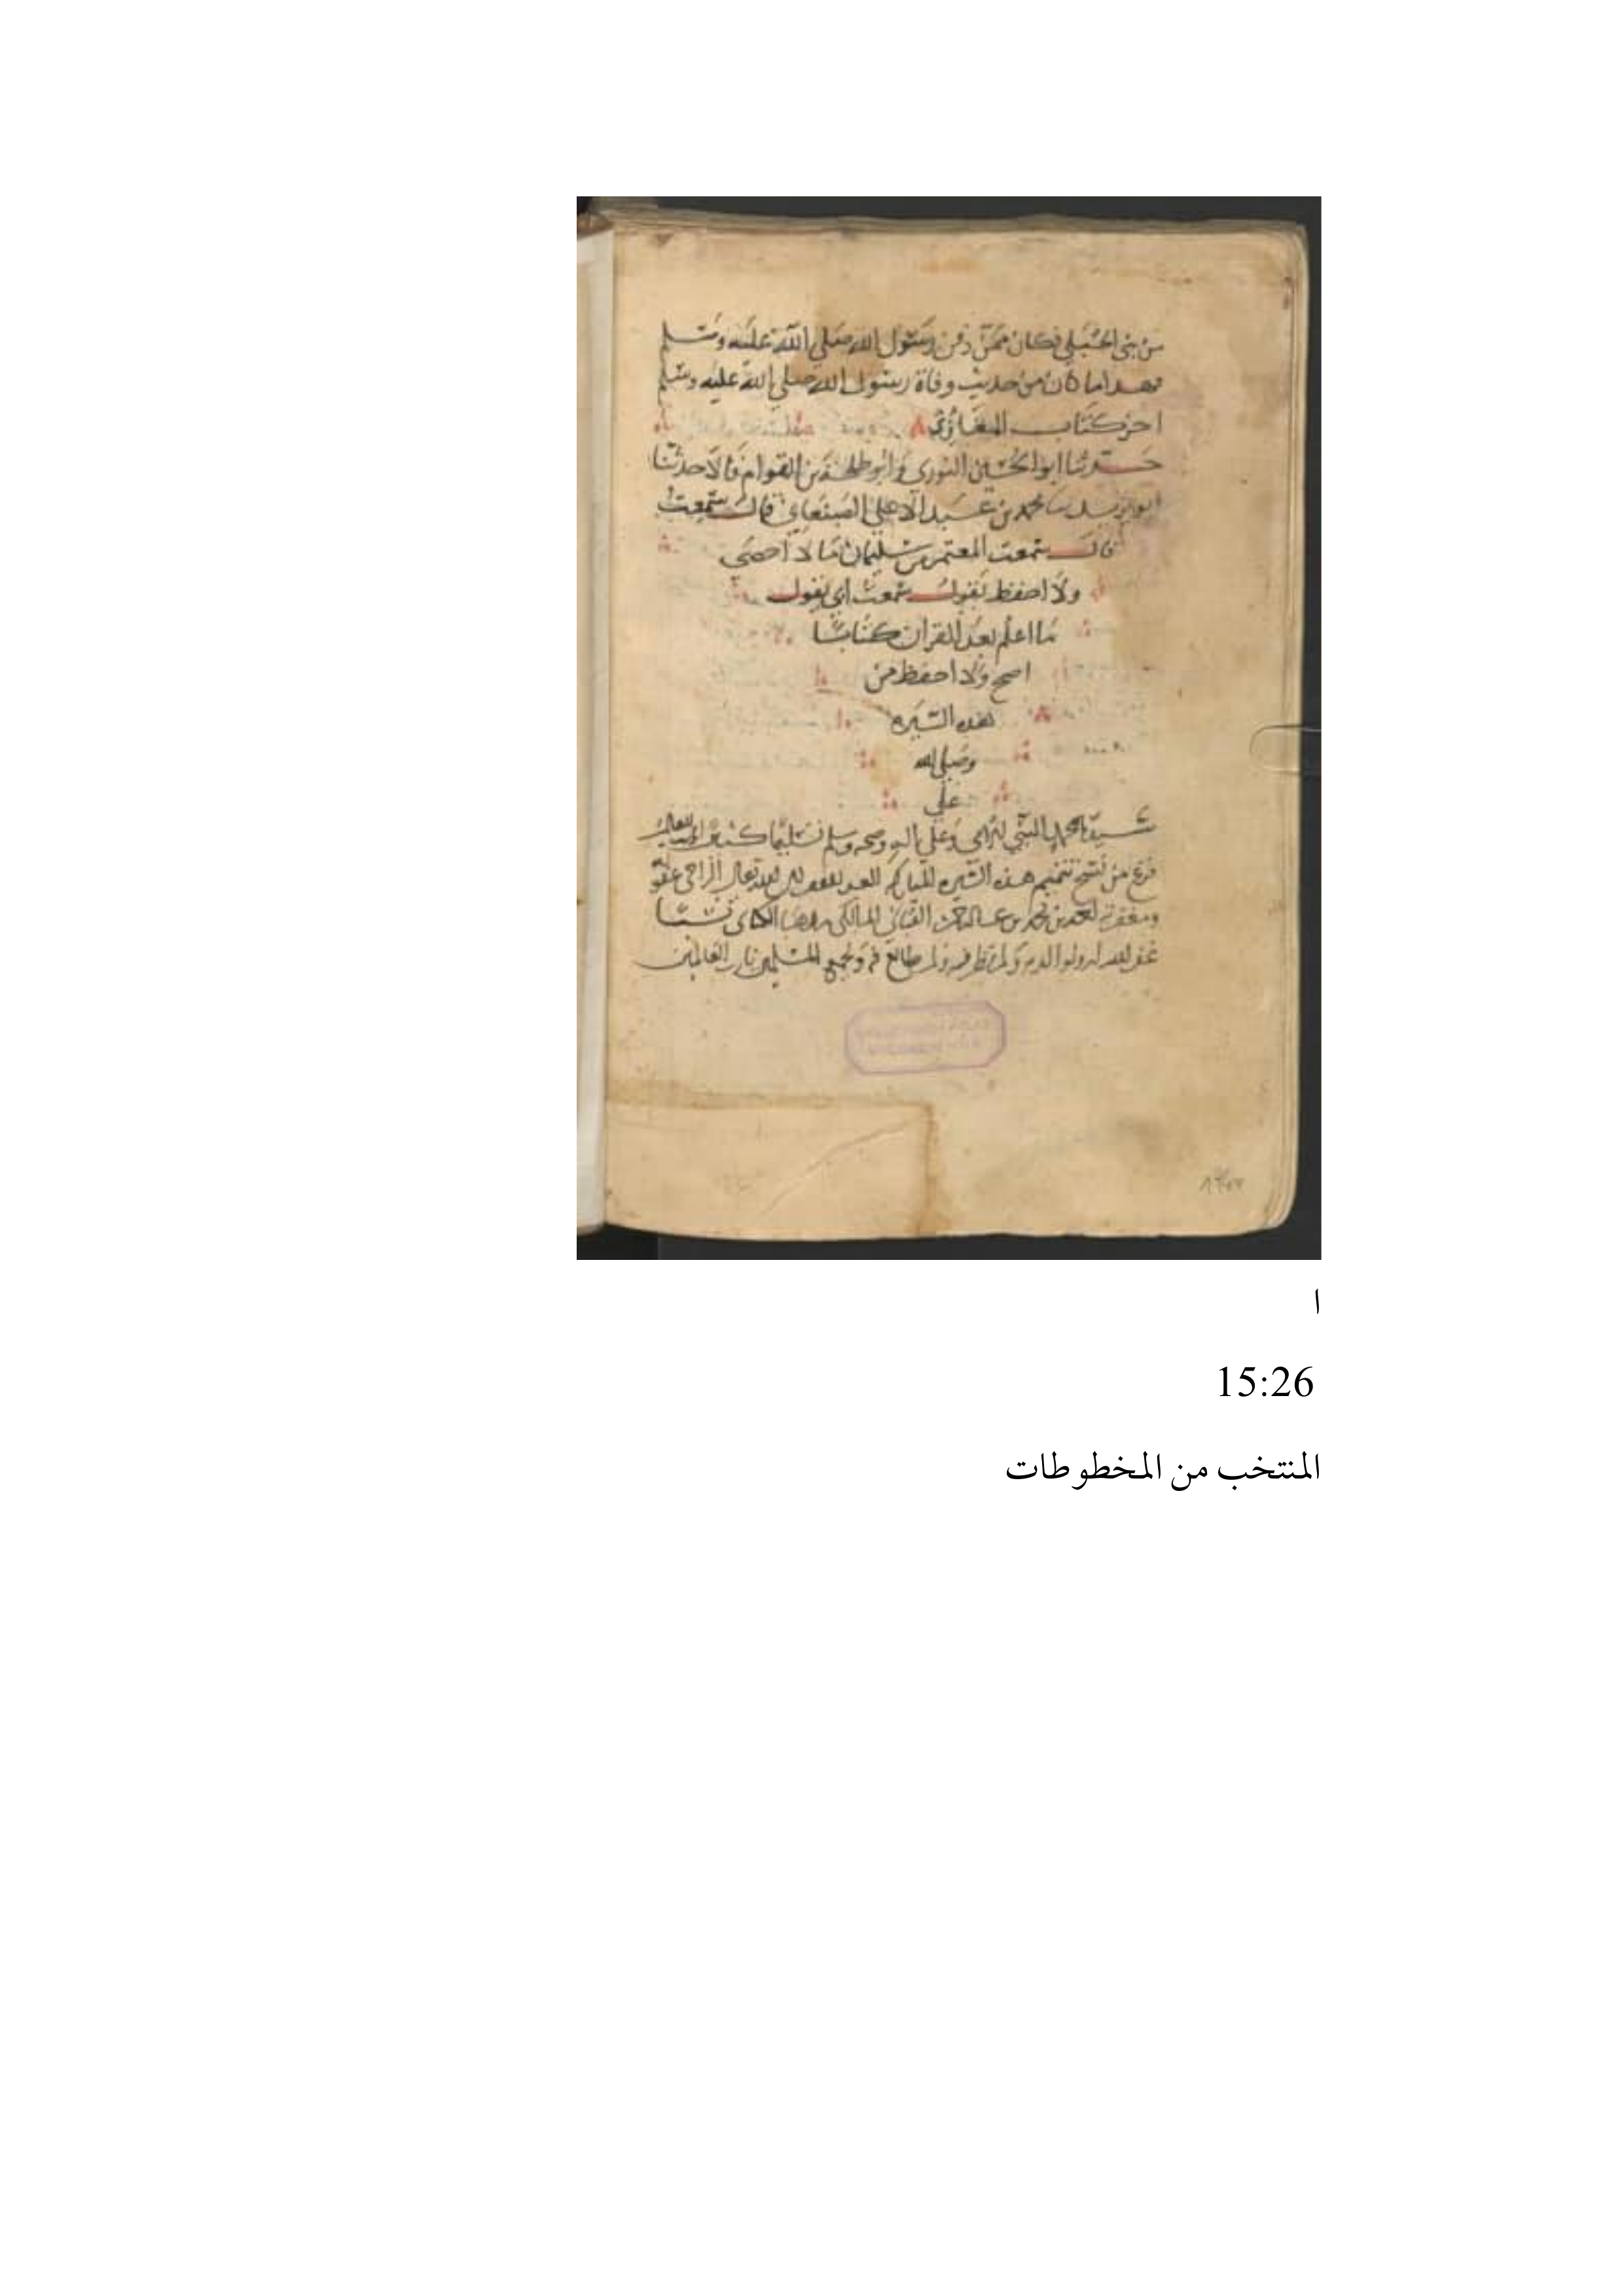 من بني الحبلي فكان ممن دفن رسول الله صلي الله عليه وسلم
فهدا ما كان من حديث وفاة رسول الله صلي الله عليه وسلم
اخر كتاب المغازي
حدثنا ابو الحسين النوري وابو طلحة بن القوام قالا حدثنا
محمد بن عبد الاعلي الصنعاني قال سمعت
قال سمعت المعتمر بن سليمان ما لا احصي
ولا احفظ يقول سمعت ابي يقول
ما اعلم بعد القران كتابا
اصح ولا احفظ من
هذه السيره
وصلى الله
علي
سيدنا محمد النبي الامي وعلي اله وصحبه وسلم تسليما كثيرا
فرغ من نسخ تتميم هذه السيره المباركه العبد الفقير الى الله تعالى الراجي عفو
ومغفرته محمد بن محمد بن المالكي مذهبا
غفر الله له ولوالديه ولمن نظر فيه ولمن طالع فيه ولجميع المسلمين يا رب العالمين
ا
15:26
المنتخب من المخطوطات